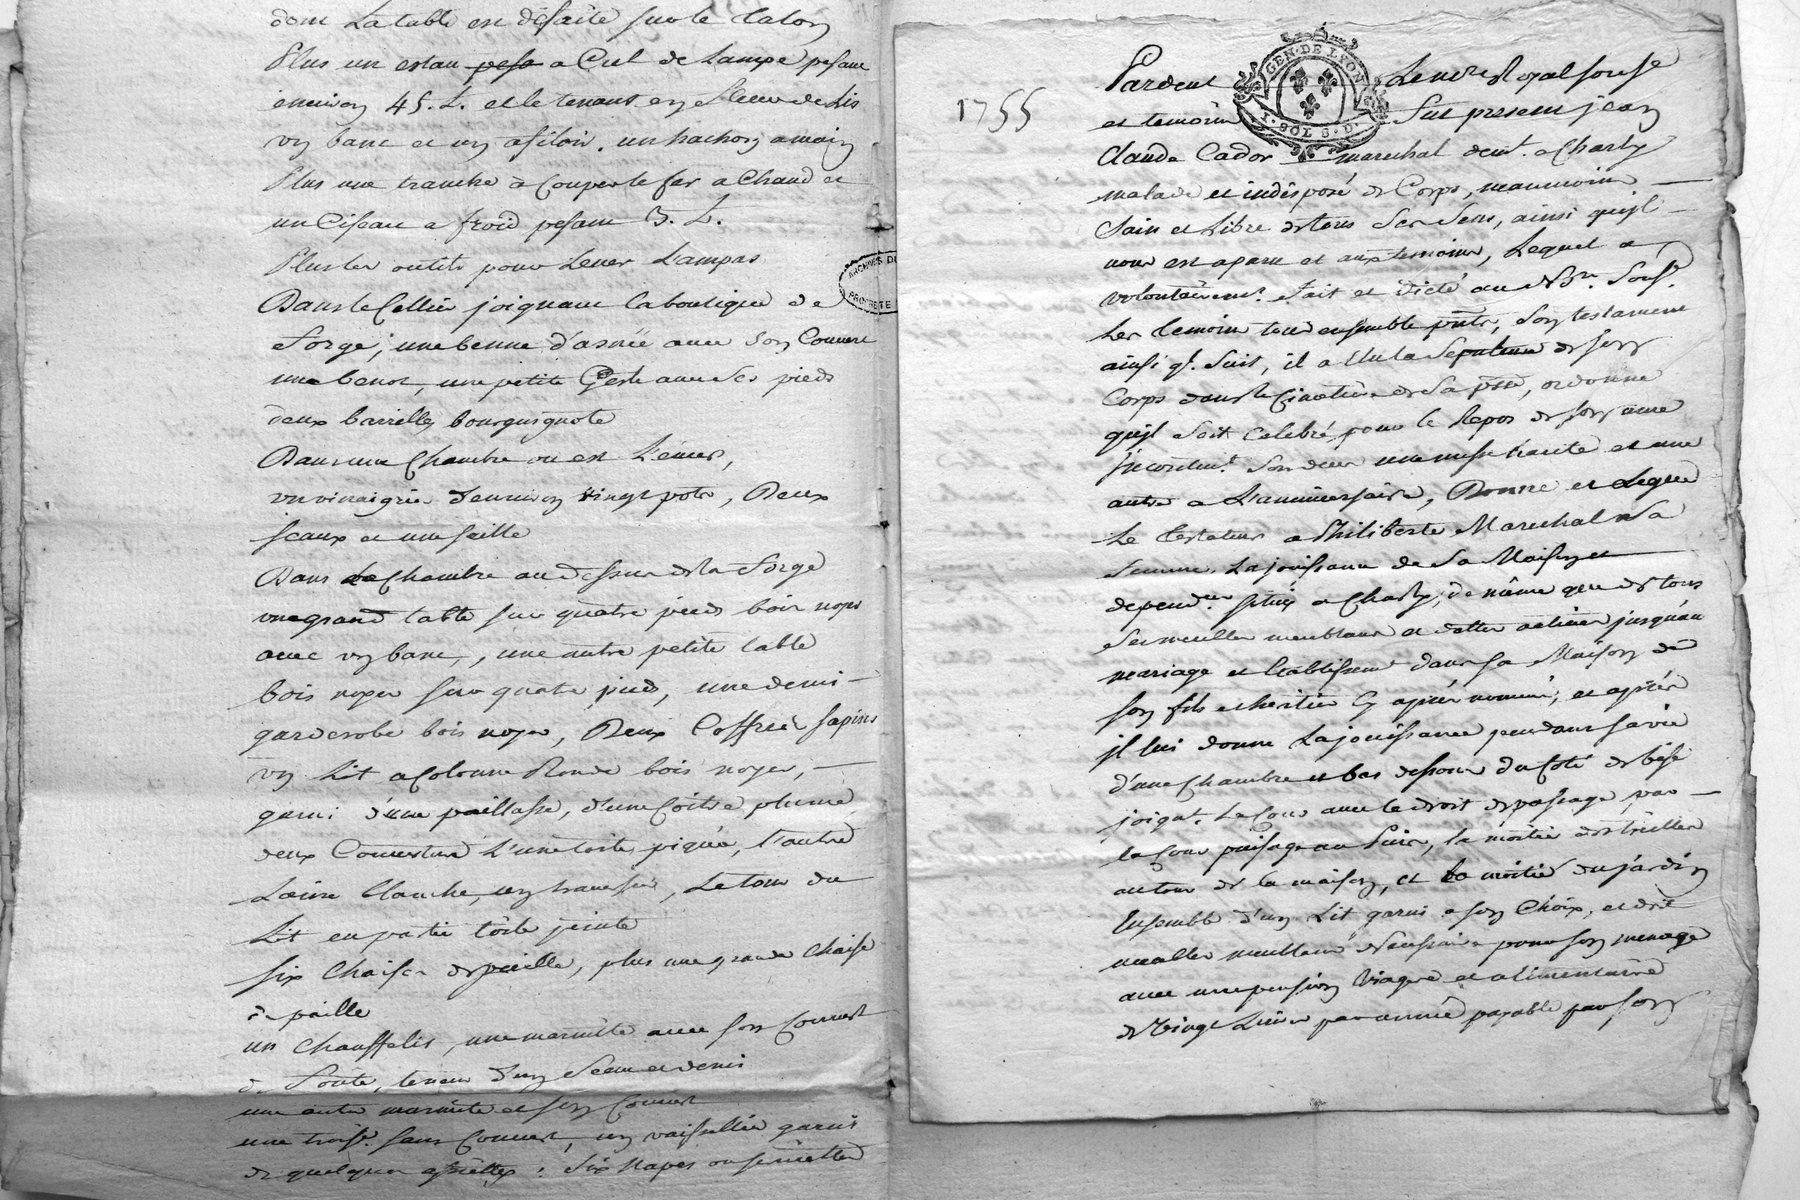 dont La table est défaite sur le talon
Plus un estau a Cul de Lampe pesant
environ 45. L. et le tenant en fleur de Lis
un banc et un afiloir, un hachon a main
Plus une tranche à Couper le fer a Chaud et
un Ciseau a froid pesant 3. L.
Plus les outils pour Lever Lampas
Dans le Cellier joignant la boutique de
forge, une benne d'asnée avec son Couvert
une benot, une petite Gerle avec Ses pieds
deux barrilles bourguignote
Dans une Chambre ou est L'évier,
un vinaigrié d'environ vingt pots, Deux
seaux et une seille
Dans La Chambre au dessus de la forge
une grand table sur quatre pieds bois noyer
avec un banc, une autre petite table
bois noyer sur quatre pieds, une demi-
garderobe bois noyer, Deux Coffres sapins
un Lit a Colonne Ronde bois noyer,
garni d'une paillasse, d'une Coitre plume
deux Couverture L'une toile piquée, L'autre
Laine blanche, un traversier, Le tour du
Lit en partie toile peinte
six Chaises de paille, plus une grande Chaise
de paille
un Chauffelis, une marmite avec son Couvert
de fonte, teneur d'un Seau et demi
une autre marmite et son Couvert
une trois.e sans Couvert, un vaissellier garni
de quelques assiettes: Six Napes ou serviettes
ARCHIVES DU
PROPRIETE
1755
GEN. DE LYON
1. SOL 8. D.
Pardevt Le no.re Royal souss.é
et temoins fut present jean
Claude Cador marechal demt. a Charly
malade et indisposé de Corps, neanmoins
Sain et Libre de tous Ses Sens, ainsi qu'jl
nous est aparu et aux temoins, Lequel a
volontairemt. fait et dicté au no.re Souss.é
Les temoins tous ensemble pnts, Son testament
ainsi q.e Suit, il a Elu la Sepulture de son
Corps dans le Cimetiere de Sa psse, ordonne
qu'jl soit Celebré pour le Repos de son ame
jncontint. Son deces une messe haute et une
autre a L'anniversaire, Donne et Legue
Le testateur a Philiberte Marechal Sa
femme La jouissance de Sa Maison et
dependces. situés a Charly, de même que de tous
Ses meubles meublans et dettes actives jusqu'au
mariage et Etablissemt. dans Sa Maison de
son fils et heritier Cy après nommé, et après
jl lui donne La jouissance pendant Sa vie
d'une Chambre et bas dessous du Coté de bise
joigt. La Cour avec le droit de passage par
la Cour puisage au Puis, la moitié des treilles
autour de la maison, et la moitié du jardin
Ensemble d'un Lit garni a son Choix, et des
meubles meublans Necessaire pour son menage
avec une pension Viagere et alimentaire
de Vingt Livres par année payable par son